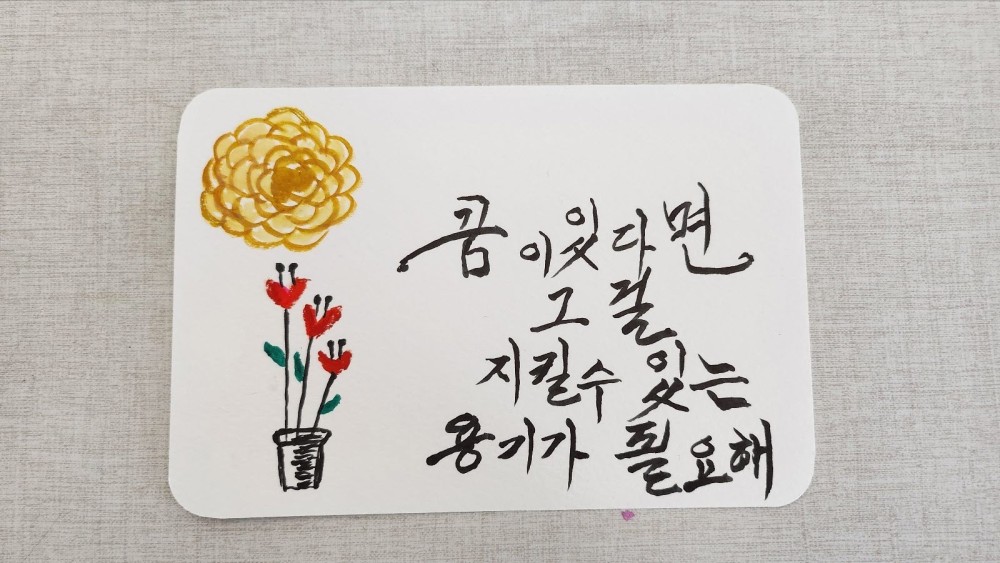 꿈이있다면
그걸
지킬수 있는
용기가 필요해